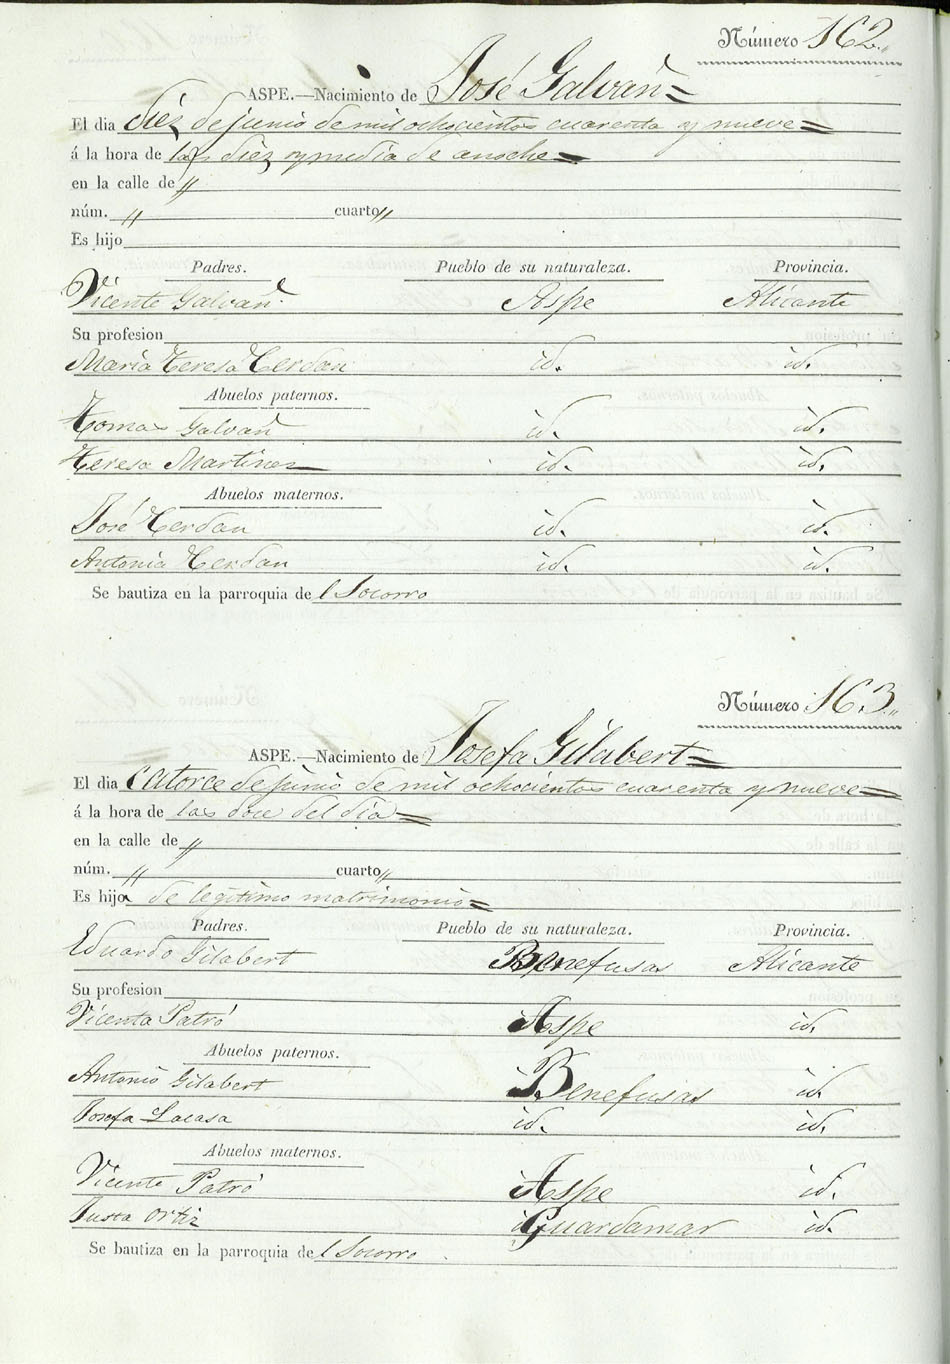 Número 162.
ASPE.—Nacimiento de José Galvañ
El dia diez de junio de mil ochocientos cuarenta y nueve
á la hora de las diez y media de anoche
en la calle de "
núm. " cuarto "
Es hijo
Padres. Pueblo de su naturaleza. Provincia.
Vicente Galvañ Aspe Alicante
Su profesion
María Teresa Cerdan id. id.
Abuelos paternos.
Tomas Galvañ id. id.
Teresa Martinez id. id.
Abuelos maternos.
José Cerdan id. id.
Antonia Cerdan id. id.
Se bautiza en la parroquia del Socorro
Número 163.
ASPE.—Nacimiento de Josefa Gilabert
El dia catorce de junio de mil ochocientos cuarenta y nueve
á la hora de las doce del dia
en la calle de "
núm. " cuarto "
Es hija de legítimo matrimonio
Padres. Pueblo de su naturaleza. Provincia.
Eduardo Gilabert Benefusas Alicante
Su profesion
Vicenta Patró Aspe id.
Abuelos paternos.
Antonio Gilabert Benefusas id.
Josefa Lacasa id. id.
Abuelos maternos.
Vicente Patró Aspe id.
Justa Ortiz Guardamar id.
Se bautiza en la parroquia del Socorro